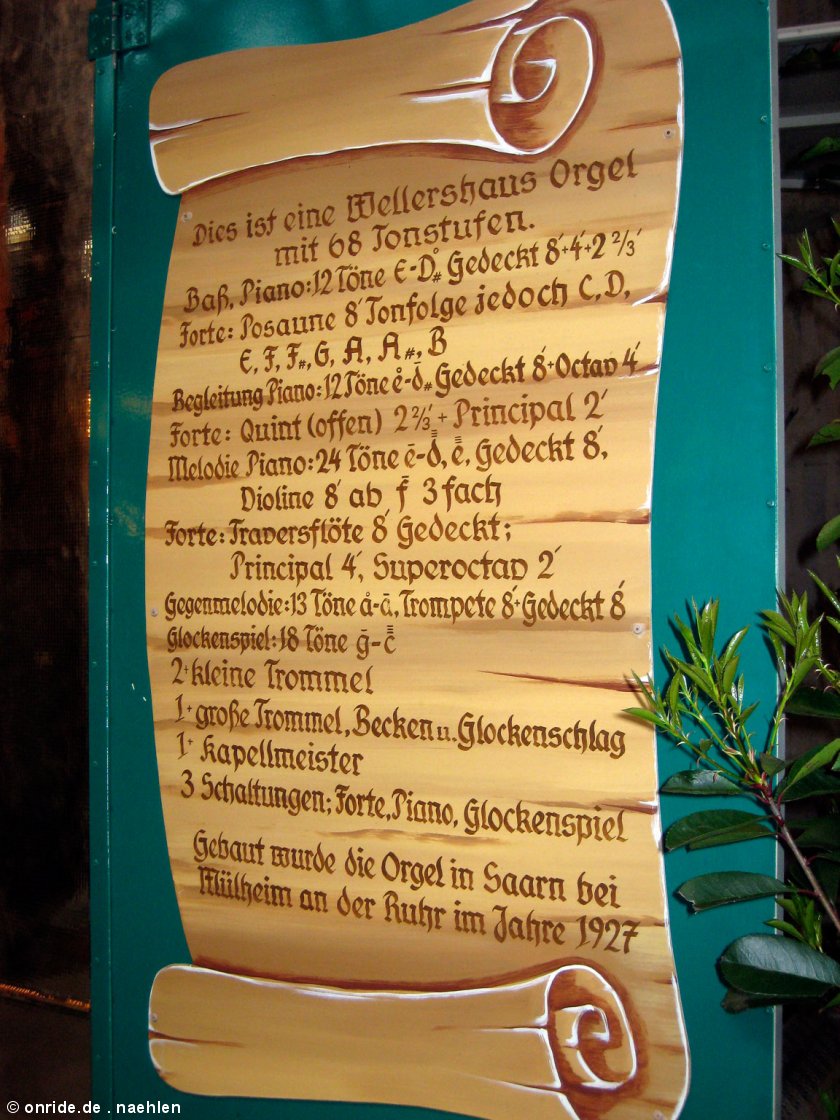 Dies ist eine Wellershaus Orgel
mit 68 Tonstufen.
Baß, Piano: 12 Töne E-D̊# Gedeckt 8´+4´+2 2/3´
Forte: Posaune 8´ Tonfolge jedoch C, D,
E, F, F#, G, A, A#, B
Begleitung Piano: 12 Töne e̊-d̄# Gedeckt 8´+Octav 4´
Forte: Quint (offen) 2 2/3´ + Principal 2´
Melodie Piano: 24 Töne ē-d̿, e̿, Gedeckt 8´,
Violine 8´ ab f̄ 3 fach
Forte: Traversflöte 8´ Gedeckt;
Principal 4´, Superoctav 2´
Gegenmelodie: 13 Töne å-ā, Trompete 8´+Gedeckt 8´
Glockenspiel: 18 Töne ḡ-c̿
2+ kleine Trommel
1+ große Trommel, Becken u. Glockenschlag
1+ Kapellmeister
3 Schaltungen; Forte, Piano, Glockenspiel
Gebaut wurde die Orgel in Saarn bei
Mülheim an der Ruhr im Jahre 1927
© onride.de . naehlen